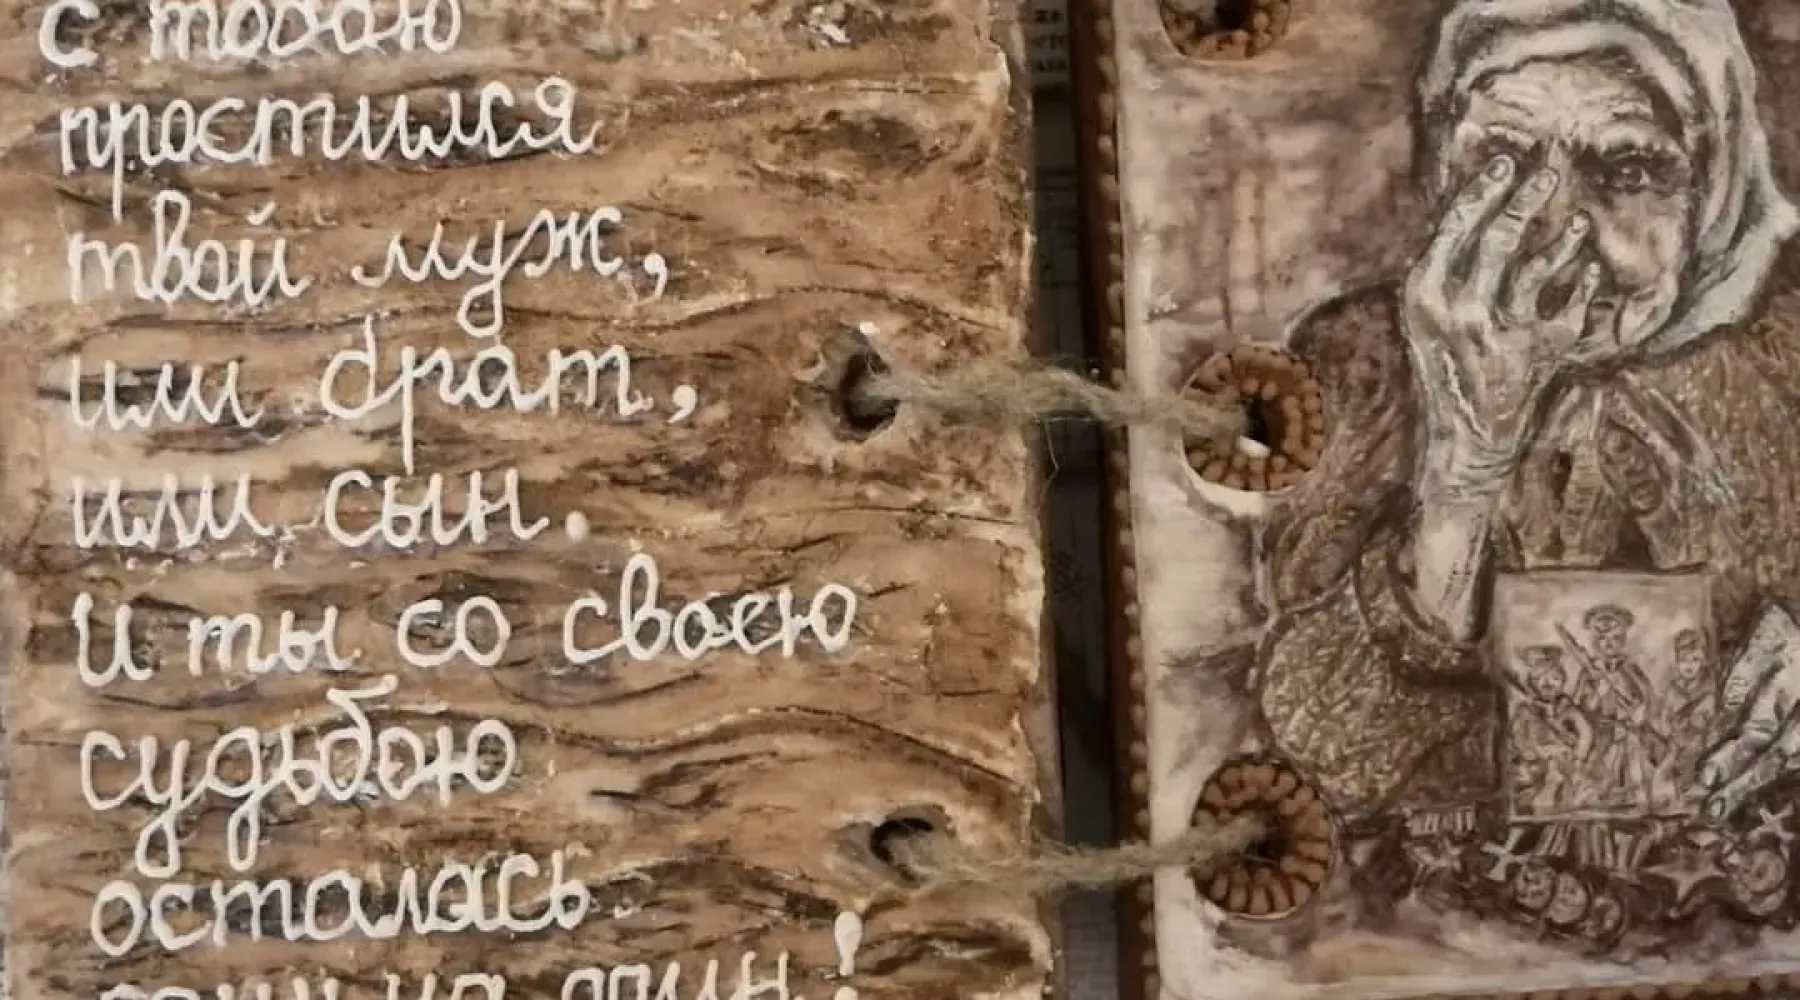 с тобою
простился
твой муж,
или брат,
или сын.
И ты со своею
судьбою
осталась
один на один!